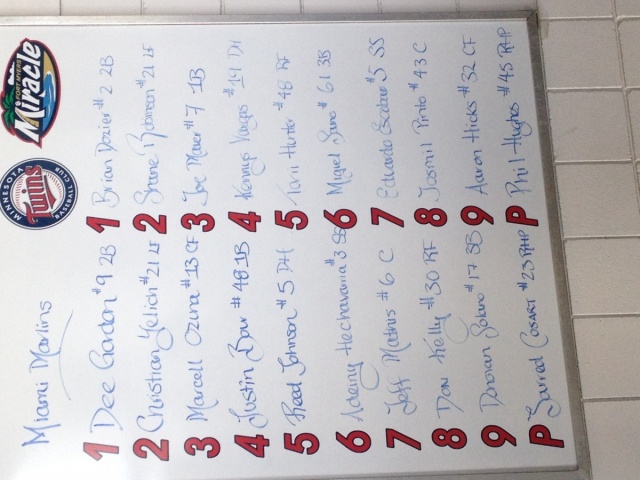 FORT MYERS
Miracle
MINNESOTA
Twins
BASEBALL CLUB
1 Brian Dozier #2 2B
2 Shane Robinson #21 LF
3 Joe Mauer #7 1B
4 Kennys Vargas #19 DH
5 Torii Hunter #48 RF
6 Miguel Sano #61 3B
7 Eduardo Escobar #5 SS
8 Josmil Pinto #43 C
9 Aaron Hicks #32 CF
P Phil Hughes #45 RHP
Miami Marlins
1 Dee Gordon #9 2B
2 Christian Yelich #21 LF
3 Marcell Ozuna #13 CF
4 Justin Bour #48 1B
5 Reed Johnson #5 DH
6 Adeiny Hechavarria #3 SS
7 Jeff Mathis #6 C
8 Don Kelly #30 RF
9 Donovan Solano #17 3B
P Jarred Cosart #23 RHP